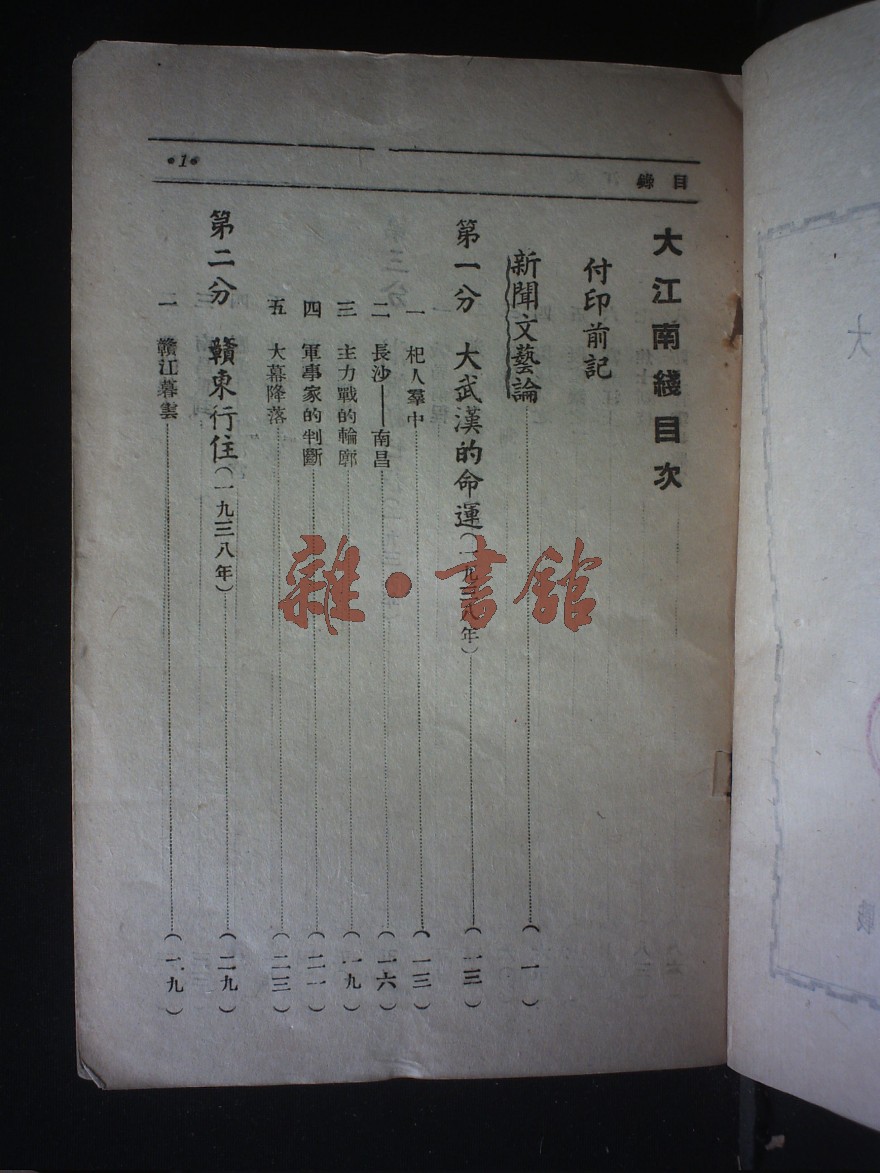 目錄
•1•
大江南綫目次
付印前記
新聞文藝論……(一)
第一分 大武漢的命運(一九三八年)……(一三)
一 杞人羣中……(一三)
二 長沙——南昌……(一六)
三 主力戰的輪廓……(一九)
四 軍事家的判斷……(二一)
五 大幕降落……(二三)
第二分 贛東行住(一九三八年)……(二九)
一 贛江暮雲……(一九)
雜·書館